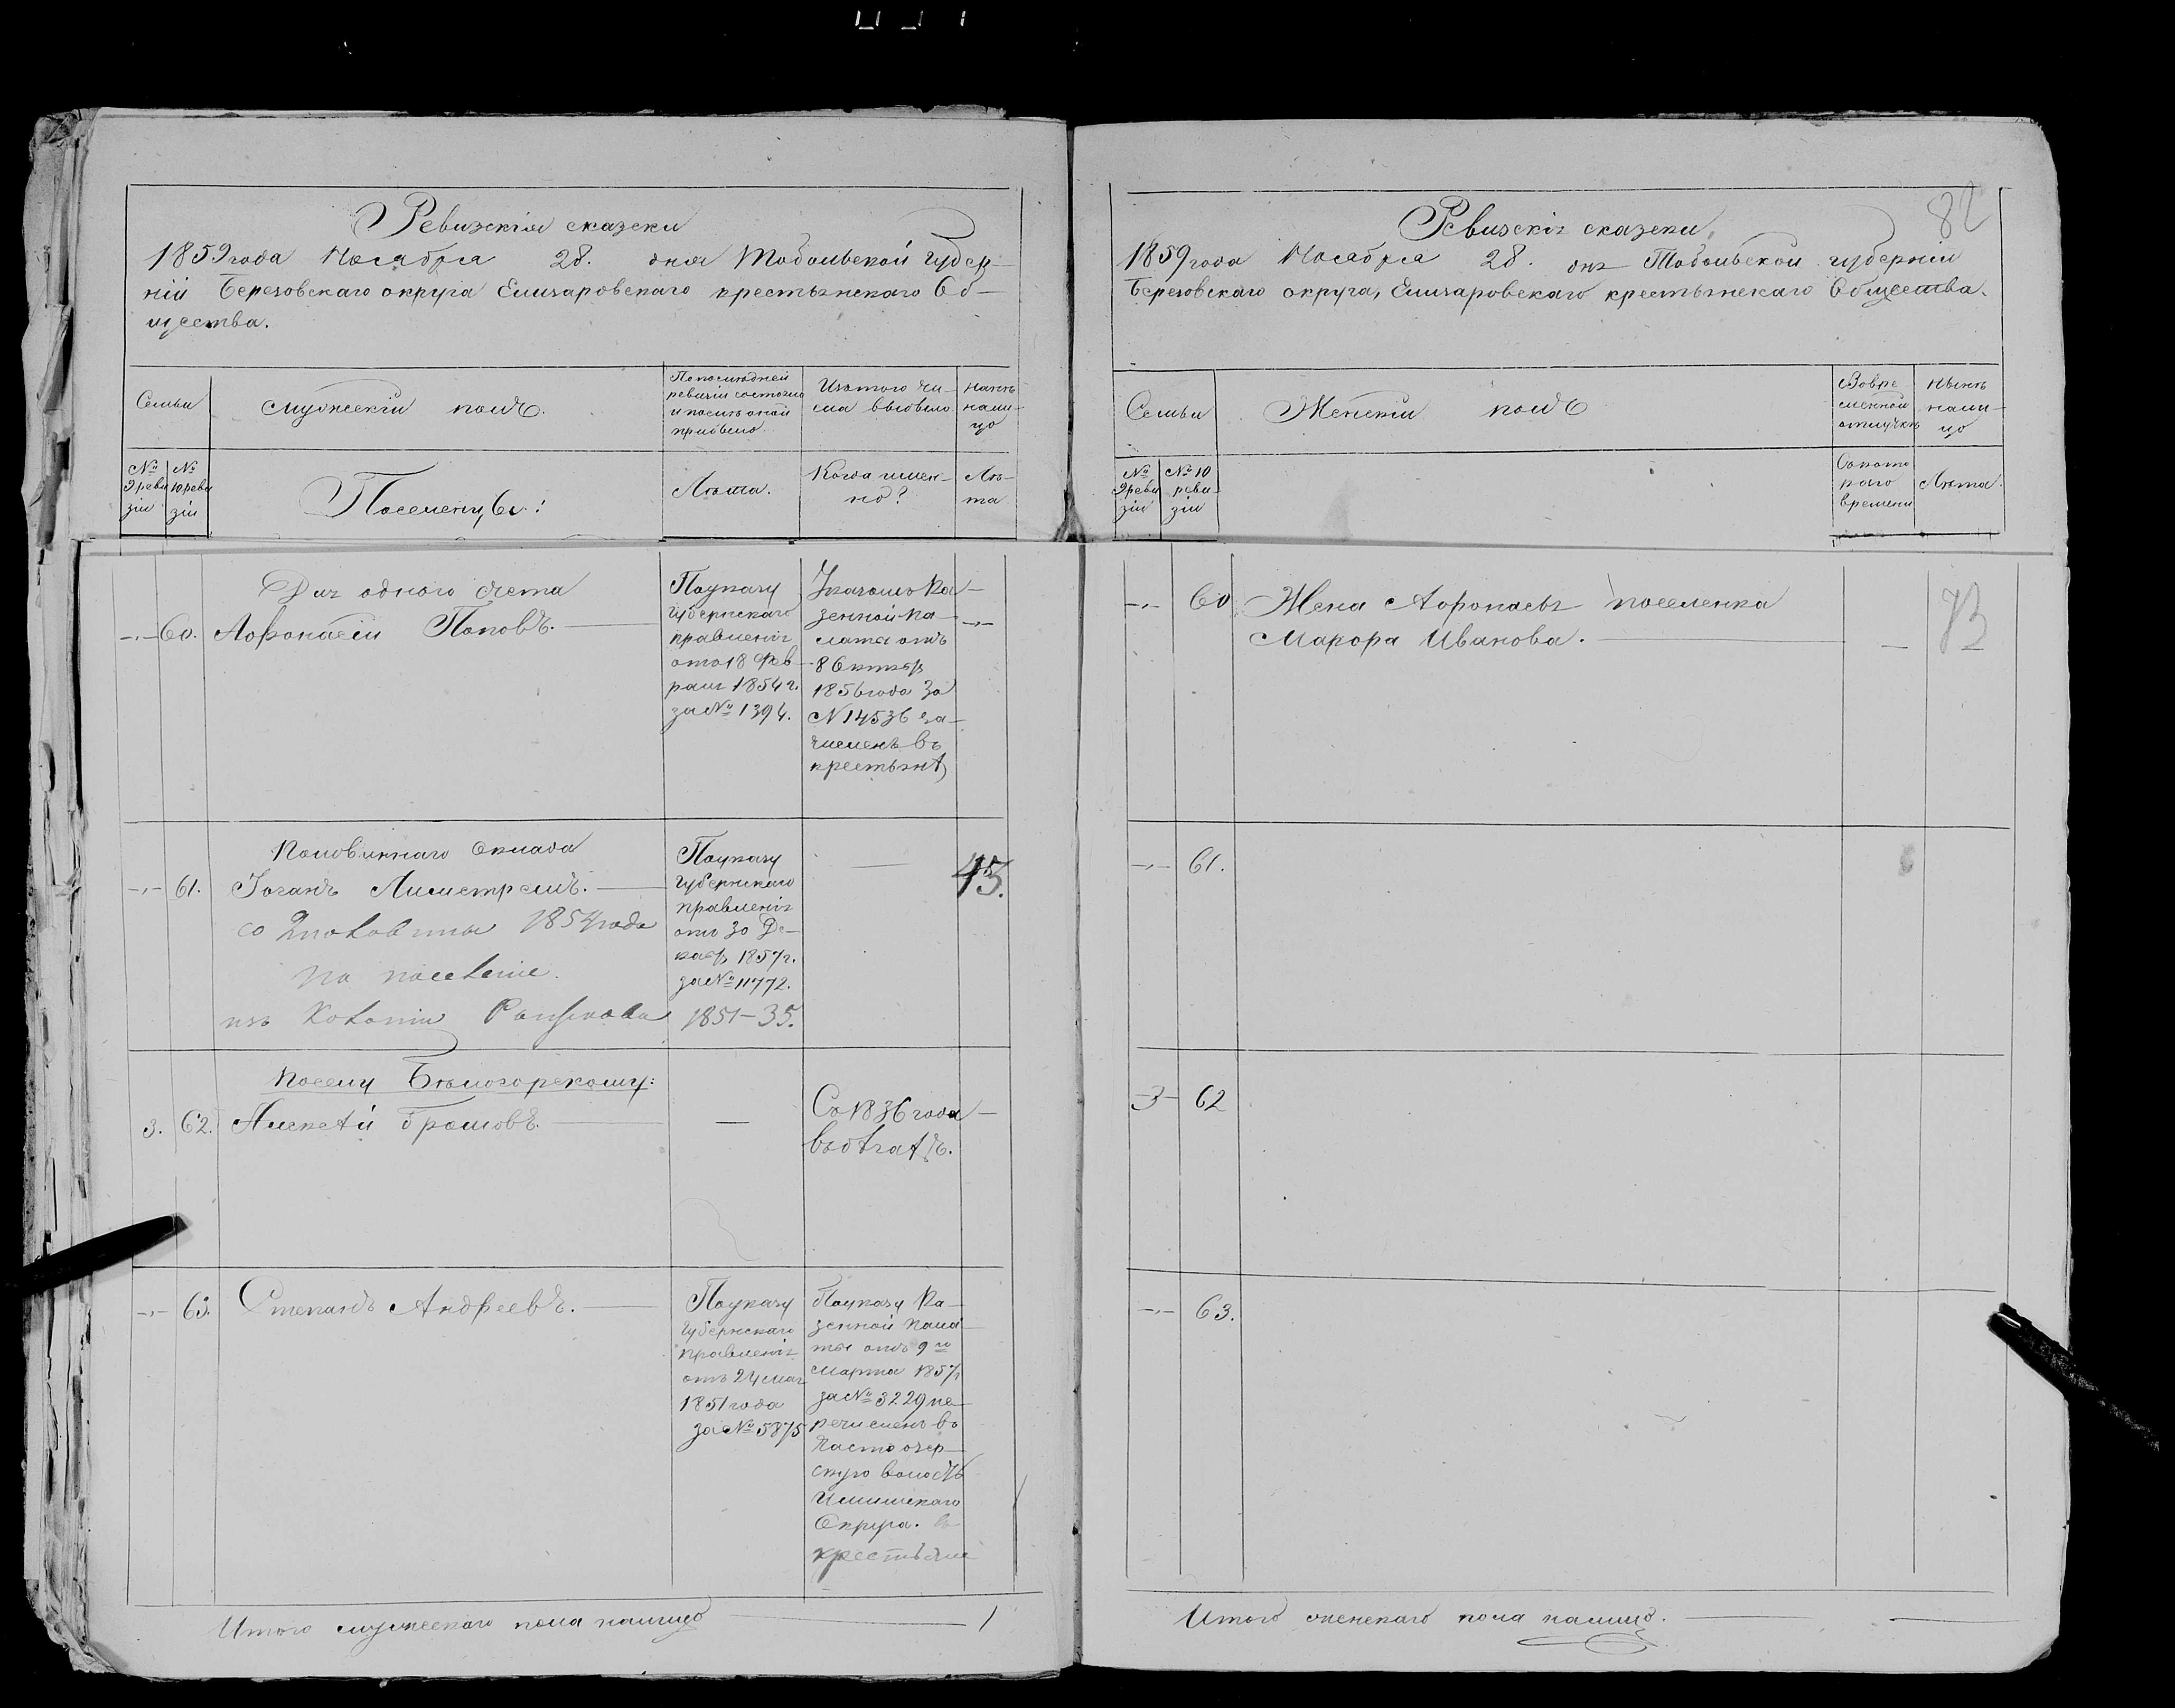 Ревизскія сказки
1859 года Ноября 28. дня Тобольской губер-
ніи Березовскаго округа Елизаровскаго крестьянскаго Об-
щества.
Семьи
Мужескій полъ.
По последней
ревизіи состояло
и после оной
прибыло
Изъ того чи-
сла выбыло
Ныне
нали-
цо
№ 9 реви зіи
№ 10 реви зіи
Поселенцы:
Лѣта.
Когда имен-
но?
Лѣ-
та
Для одного счета
-„- 60. Афонасій Поповъ.
По указу
Губернскаго
правленія
отъ 18 Фев
раля 1854 г.
за № 1394.
Указомъ Ка
зенной Па-
латы отъ
8 Октяб
1856 года за
N 14536 за-
численъ въ
крестьяне
-„-
Половиннаго Оклада
-„- 61. Іоганъ Лилистремъ.
со 2 половины 1854 года
на поселеніе.
изъ Колоніи
По указу
Губернскаго
правленія
отъ 30 Де-
каб 1857 г.
за № 11772.
1851-35.
—
43.
Поселу Бѣлогорскому:
3. 62. Алексѣй
—
Съ 1836 года
въ бѣгахъ.
—
-„- 63. Степанъ Андреевъ.
По указу
Губернскаго
правленія
отъ 24 мая
1851 года
за № 5875
По указу Ка-
зенной Пала
ты отъ 9 го
Марта 1857 г
за № 3229 пе-
речисленъ въ
скую волость
Ишимскаго
Округа. въ
крестьяне
Итого мужескаго пола налицо 1
82
Ревизскія сказки,
1859 года Ноября 28. дня Тобольской губерніи
Березовскаго округа, Елизаровскаго крестьянскаго Общества.
Семьи
Женскій полъ
Во вре-
менной
отлучкѣ
Нынѣ
нали-
цо
№ 9 реви зіи
№ 10 реви зіи
Съ кото
раго
времени
Лѣта.
-„- 60 Жена Афонасья поселенка
Мавра Иванова. —
-„- 61.
3 62
-„- 63.
Итого женскаго пола налицо. —